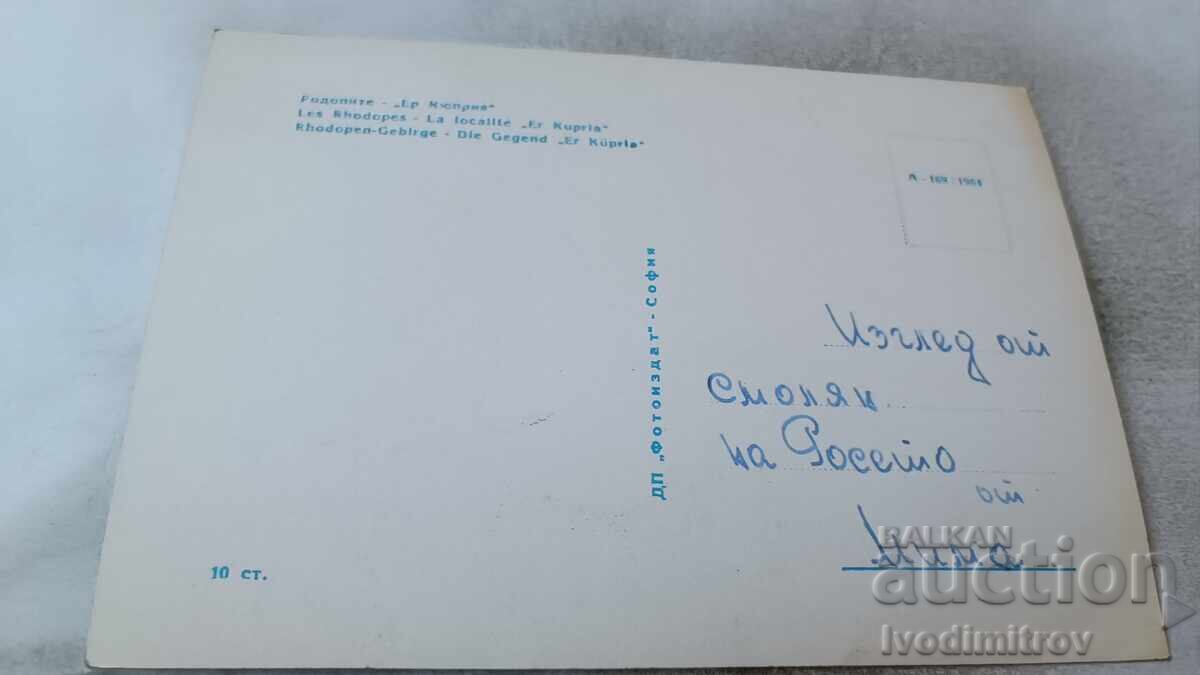 Родопите - „Ер Кюприя“
Les Rhodopes - La localité „Er Kupria“
Rhodopen-Gebirge - Die Gegend „Er Küpria“
А - 169 / 1961
ДП „Фотоиздат“ - София
Изглед от
Смолян
на Росето
от
10 ст.
BALKAN
auction
Ivodimitrov